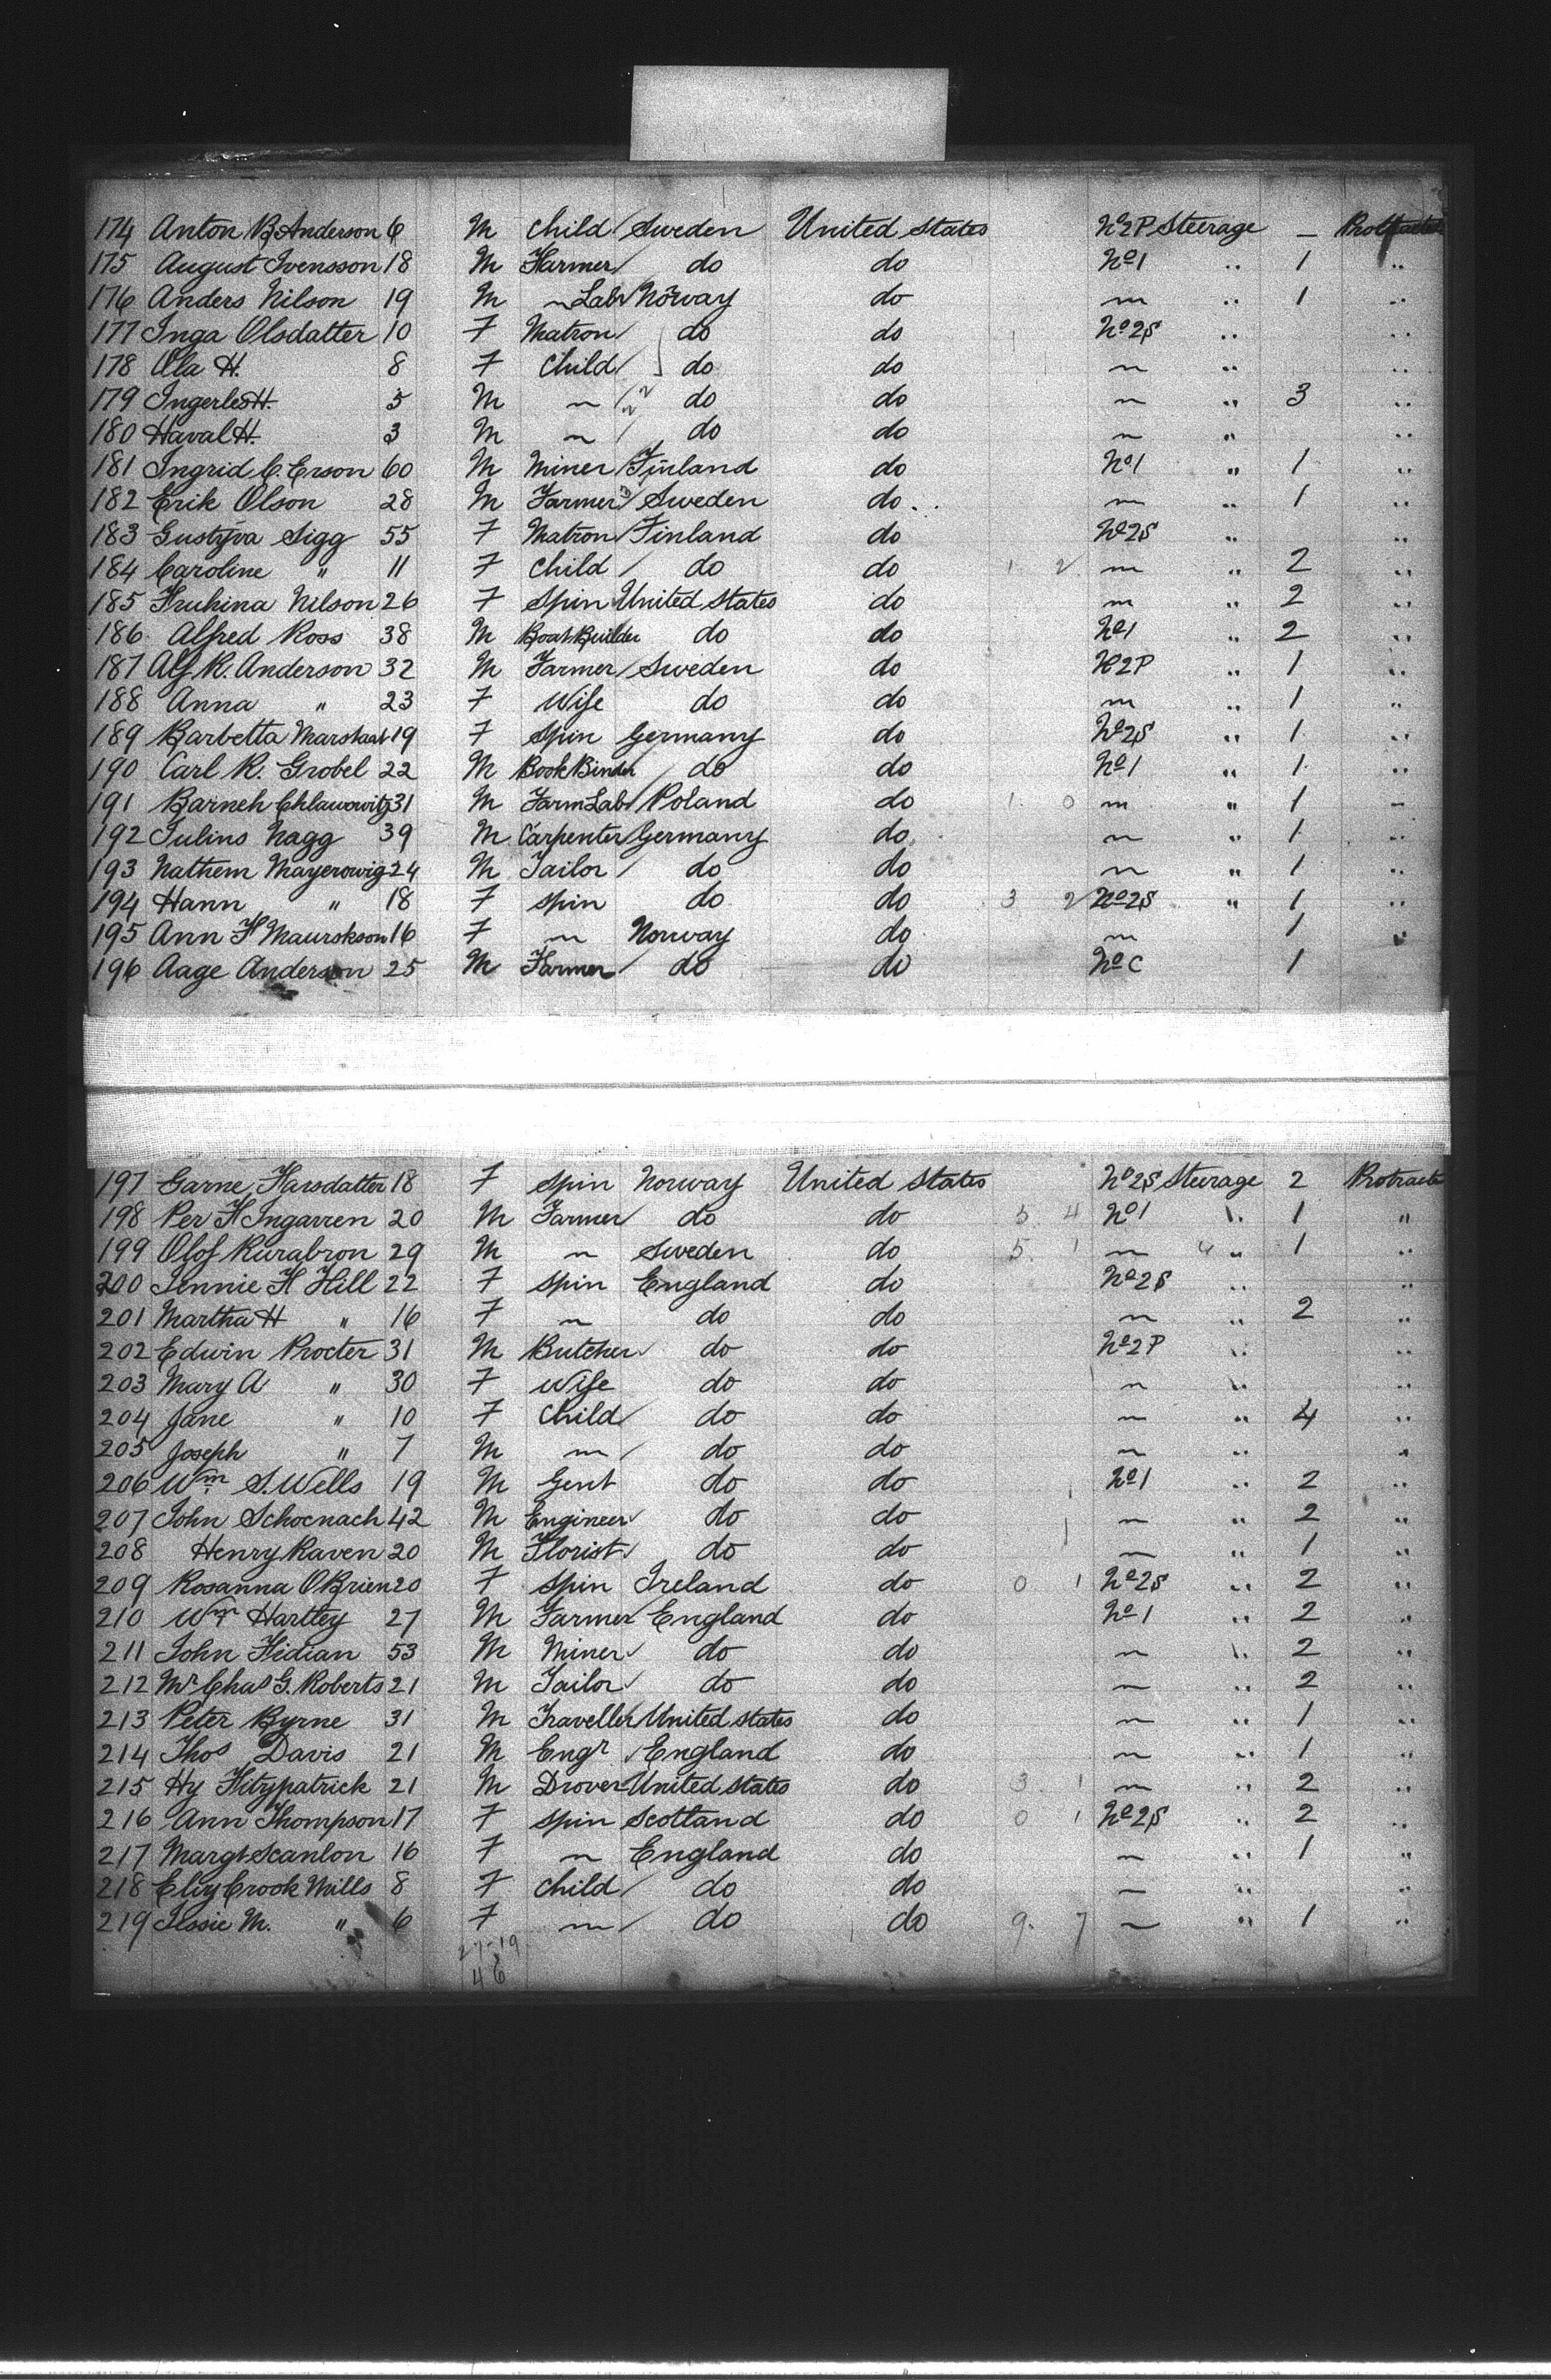 174 Anton B Anderson 6 M Child Sweden United States No 2P Steerage –
175 August Svensson 18 M Farmer do do No 1 " 1 "
176 Anders Nilson 19 M " Labr Norway do " " 1 "
177 Inga Olsdatter 10 F Matron do do No 2S " "
178 Ola H. 8 F Child do do " " "
179 H. 5 M " do do " " 3 "
180 Haval H. 3 M " do do " " "
181 Ingrid C. Erson 60 M Miner Finland do No 1 " 1 "
182 Erik Olson 28 M Farmer Sweden do " " 1 "
183 Sigg 55 F Matron Finland do No 2S " "
184 Caroline " 11 F Child do do 1 2 " " 2 "
185 Nilson 26 F Spin United States do " " 2 "
186 Alfred Ross 38 M Boat Builder do do No 1 " 2 "
187 Alf R. Anderson 32 M Farmer Sweden do No 2P " 1 "
188 Anna " 23 F Wife do do " " 1 "
189 Barbetta 19 F Spin Germany do No 2S " 1 "
190 Carl R. Grobel 22 M Book Binder do do No 1 " 1 "
191 Barneh Chlawowitz 31 M Farm Labr Poland do 1 0 " " 1 "
192 Julins Nagg 39 M Carpenter Germany do " " 1 "
193 Nathem Mayerowig 24 M Tailor do do " " 1 "
194 Hann " 18 F Spin do do 3 2 No 2S " 1 "
195 Ann H Maurskson 16 F " Norway do " 1 "
196 Aage Anderson 25 M Farmer do do No C 1
197 Garne Harsdatter 18 F Spin Norway United States No 2S Steerage 2 Protracte
198 Per H Ingarren 20 M Farmer do do 3 4 No 1 " 1 "
199 Olof Kurabron 29 M " Sweden do 5 1 " " 1 "
200 Jennie H Hill 22 F Spin England do No 2S " "
201 Martha H " 16 F " do do " " 2 "
202 Edwin Procter 31 M Butcher do do No 2P " "
203 Mary A " 30 F Wife do do " " "
204 Jane " 10 F Child do do " " 4 "
205 Joseph " 7 M " do do " " "
206 Wm S. Wells 19 M Gent do do No 1 " 2 "
207 John Schoenach 42 M Engineer do do " " 2 "
208 Henry Raven 20 M Florist do do " " 1 "
209 Rosanna OBrien 20 F Spin Ireland do 0 1 No 2S " 2 "
210 Wm Hartley 27 M Farmer England do No 1 " 2 "
211 John Hidian 53 M Miner do do " " 2 "
212 Mr Chas G. Roberts 21 M Tailor do do " " 2 "
213 Peter Byrne 31 M Traveller United States do " " 1 "
214 Thos Davis 21 M Engr England do " " 1 "
215 Hy Fitzpatrick 21 M Drover United States do 3 1 " " 2 "
216 Ann Thompson 17 F Spin Scotland do 0 1 No 2S " 2 "
217 Margt Scanlon 16 F " England do " " 1 "
218 Eliz Crook Mills 8 F Child do do " " "
219 Jessie M. " 6 F " do do 9 7 " " 1 "
27-19
46